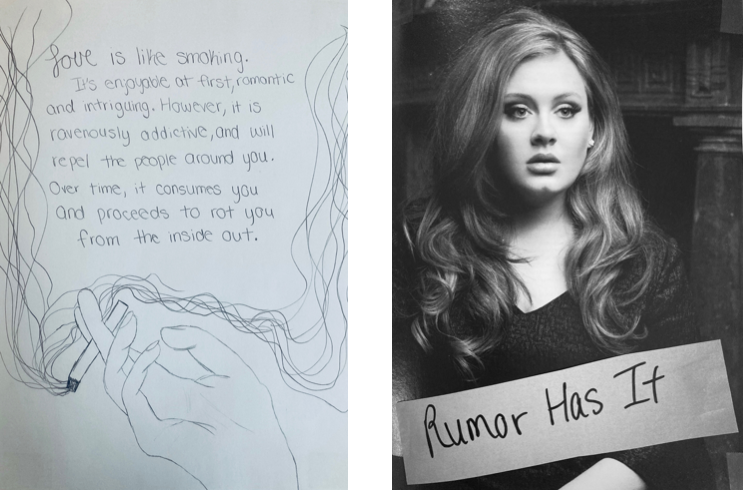 Love is like smoking.
It's enjoyable at first, romantic
and intriguing. However, it is
ravenously addictive, and will
repel the people around you.
Over time, it consumes you
and proceeds to rot you
from the inside out.
Rumor Has It